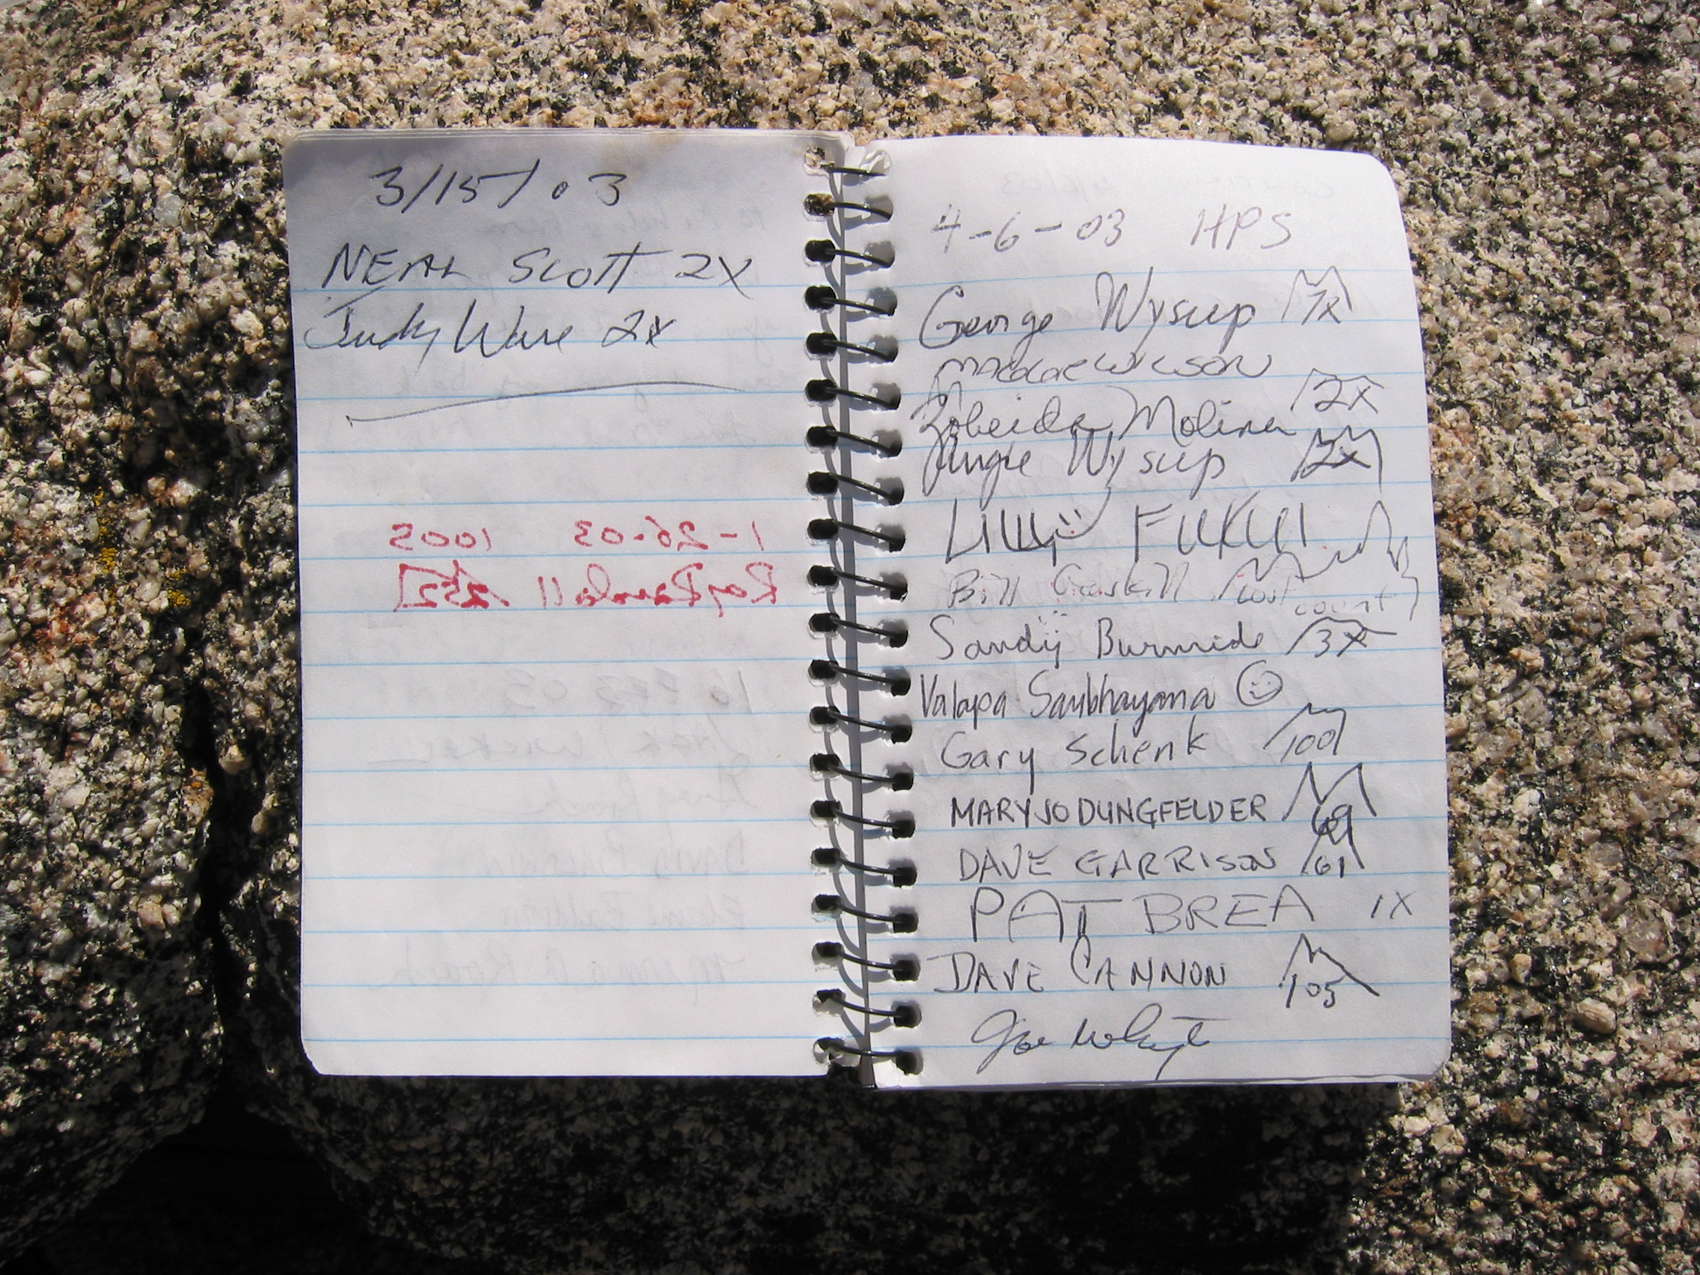 3/15/03
NEAL SCOTT 2X
Judy Ware 2x
1-26-03 1005
Ray
4-6-03 HPS
George Wysup 7x
WILSON
Zobeida Molina 2x
Angie Wysup 12x
LILLY FUKUI
Bill Gaskill lost count
Sandy Burnside 3x
Valapa Saubhayana
Gary Schenk 100
MARY JO DUNGFELDER 69
DAVE GARRISON 61
PAT BREA 1X
DAVE CANNON 105
Joe